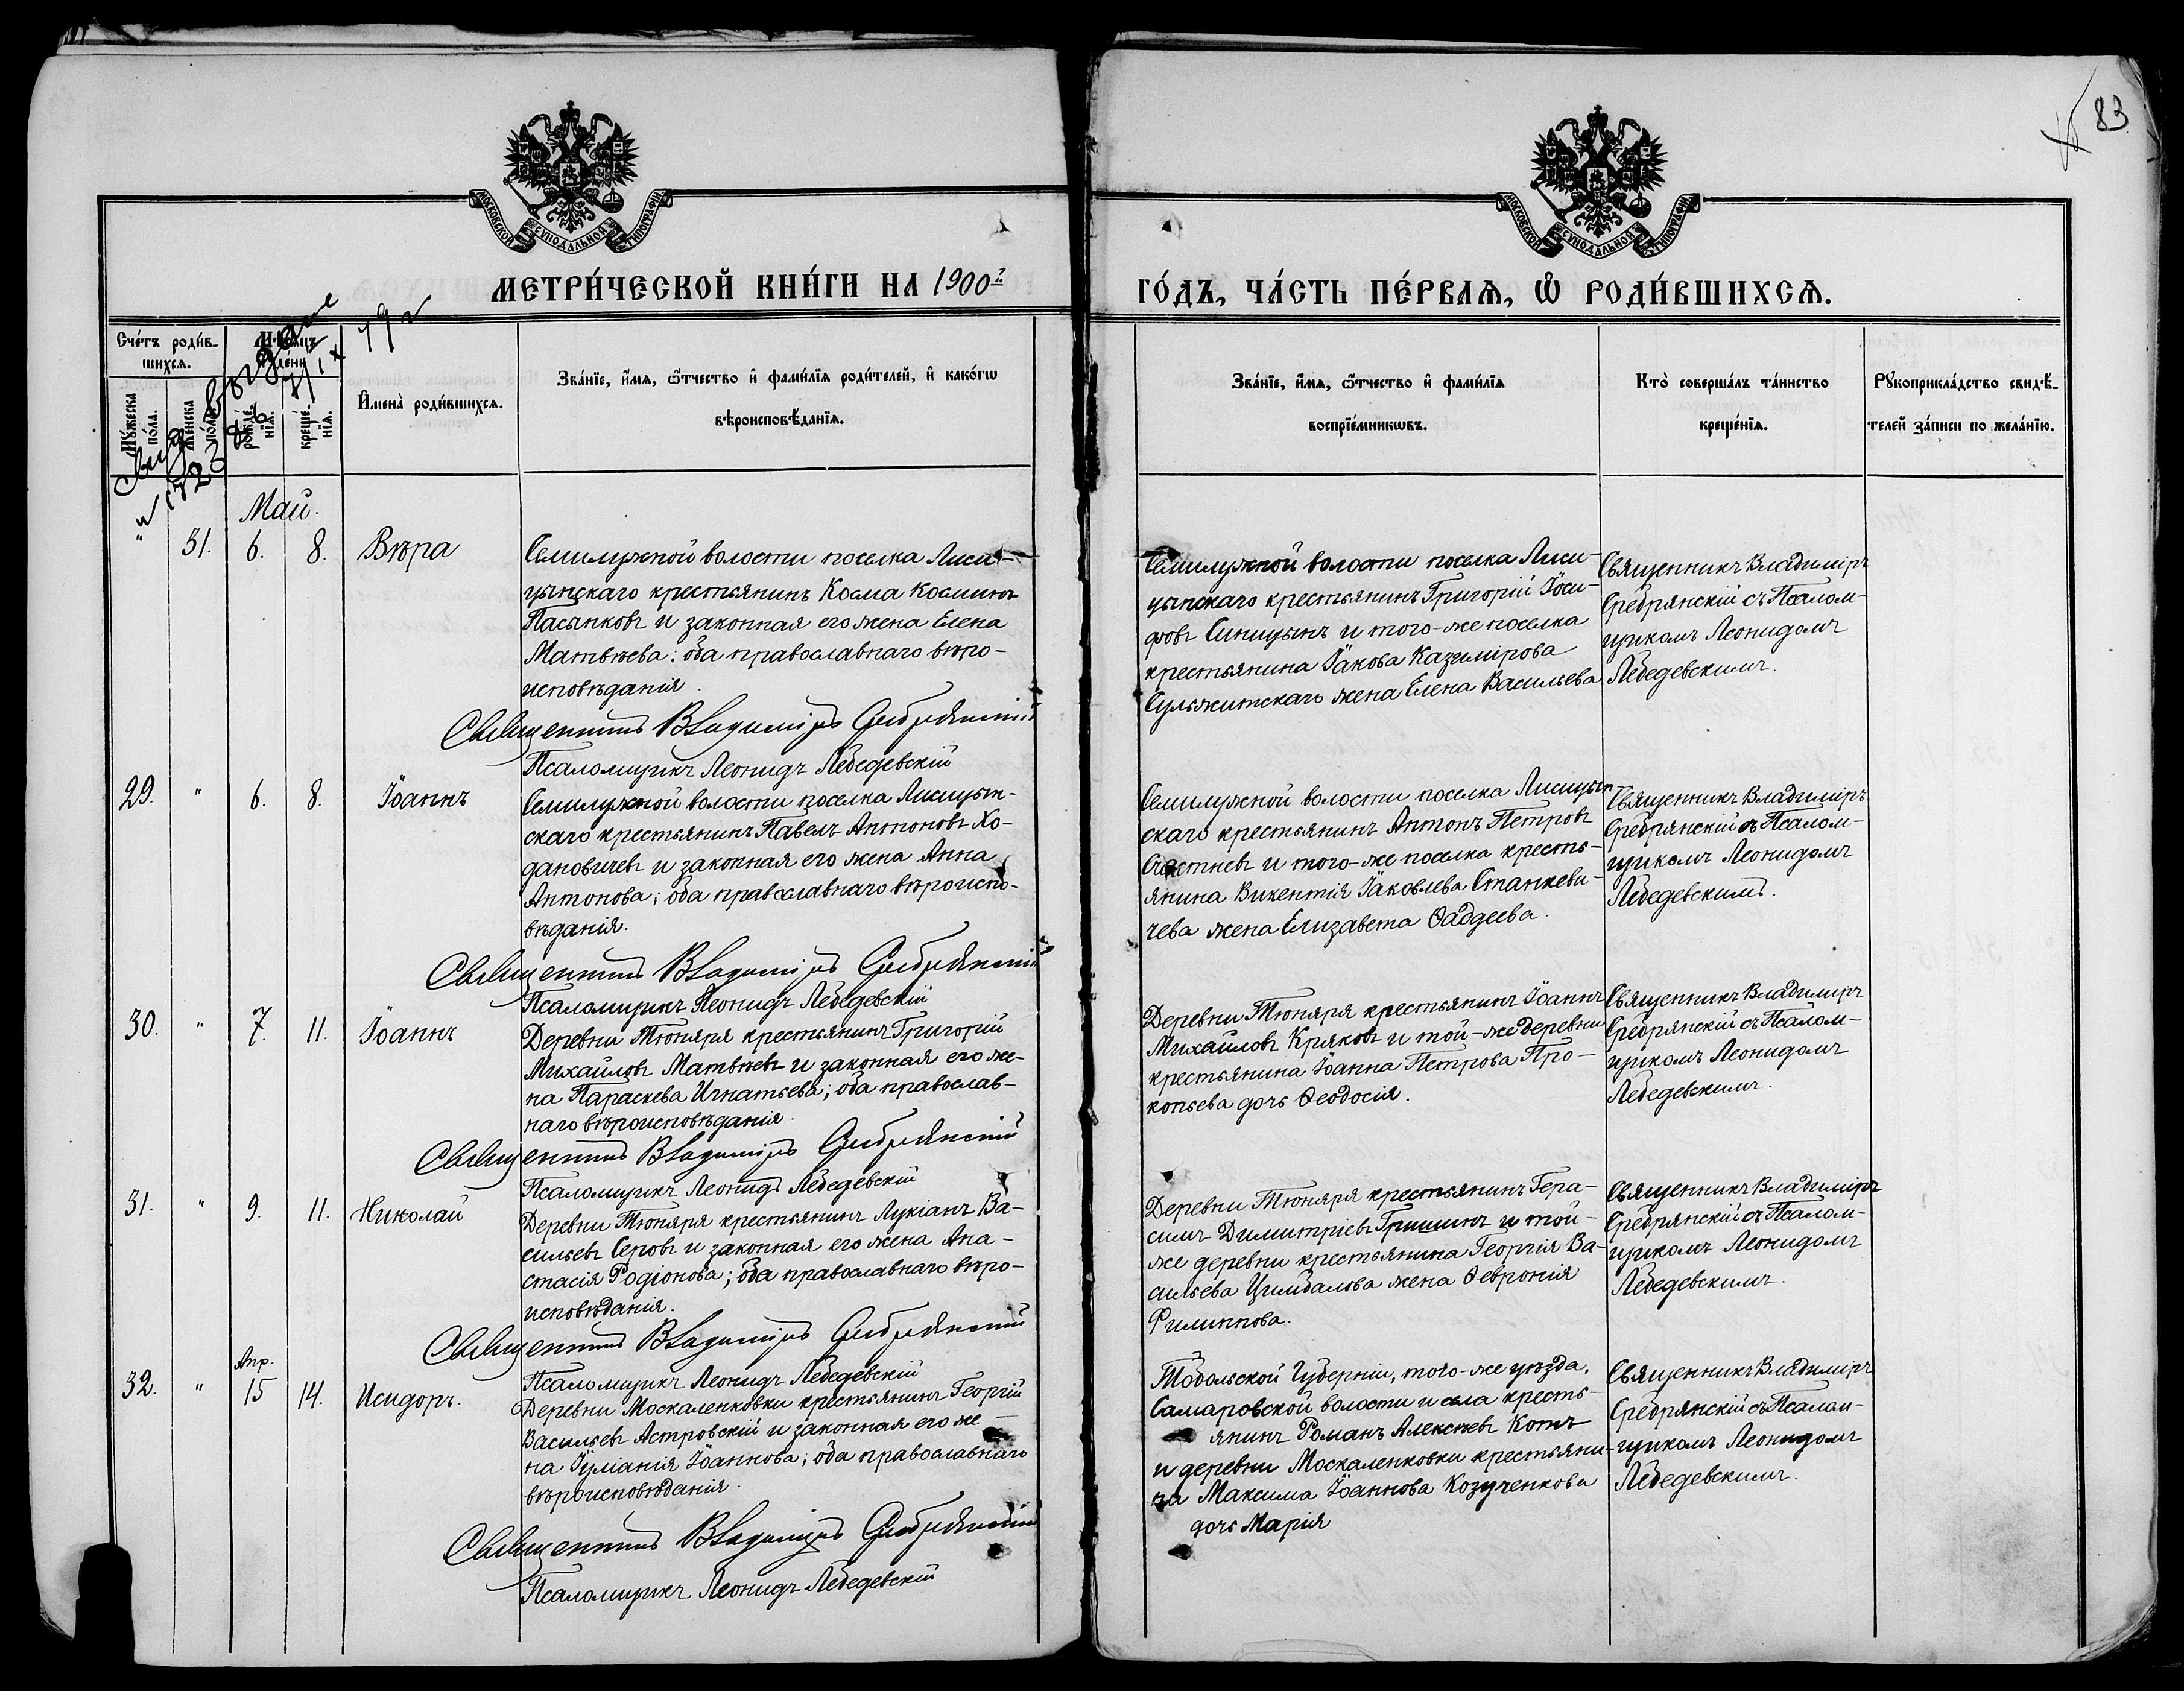 83
МОСКОВСКОЙ СѴНОДАЛЬНОЙ ТИПОГРАФІИ
МОСКОВСКОЙ СѴНОДАЛЬНОЙ ТИПОГРАФІИ
МЕТРИ́ЧЕСКОЙ КНИ́ГИ НА 1900й
ГО́ДЪ, ЧА́СТЬ ПЕ́РВАѦ, Ѡ҆ РОДИ́ВШИХСѦ.
Сче́тъ роди́в-
шихсѧ.
Му́жеска по́ла.
Же́нска по́ла.
Мѣ́сѧцъ и҆ де́нь
рожде́нїѧ.
креще́нїѧ.
И҆мена̀ роди́вшихсѧ.
Зва́нїе, и҆́мѧ, ѻ҆́тчество и҆ фами́лїѧ роди́телей, и҆ како́гѡ
вѣроисповѣ́данїѧ.
Зва́нїе, и҆́мѧ, ѻ҆́тчество и҆ фами́лїѧ
воспрїе́мникѡвъ.
Кто̀ соверша́лъ та́инство
креще́нїѧ.
Рꙋкоприкла́дство свидѣ́-
телей за́писи по жела́нїю.
Май.
" 31. 6. 8. Вѣра
Семилужной волости поселка Лиси-
цынскаго крестьянинъ Косма Косминъ
Пасынковъ и законная его жена Елена
Матвѣева; оба православнаго вѣро-
исповѣданія.
Священникъ Владиміръ Сребрянскій
Псаломщикъ Леонидъ Лебедевскій
Семилужной волости поселка Лиси-
цынскаго крестьянинъ Григорій Іоси-
фовъ Синицынъ и того-же поселка
крестьянина Іакова Казимірова
Сульжитскаго жена Елена Васильева
Священникъ Владиміръ
Сребрянскій съ Псалом-
щикомъ Леонидомъ
Лебедевскимъ.
29. " 6. 8. Іоаннъ
Семилужной волости поселка Лисицын-
скаго крестьянинъ Павелъ Антоновъ Хо-
дановичевъ и законная его жена Анна
Антонова; оба православнаго вѣроиспо-
вѣданія.
Священникъ Владиміръ Сребрянскій
Псаломщикъ Леонидъ Лебедевскій
Семилужной волости поселка Лисицын
скаго крестьянинъ Антонъ Петровъ
Счастневъ и того-же поселка кресть-
янина Викентія Іаковлева Станкеви-
чева жена Елизавета Ѳаддеева.
Священникъ Владиміръ
Сребрянскій съ Псалом-
щикомъ Леонидомъ
Лебедевскимъ.
30. " 7. 11. Іоаннъ
Деревни Тюняря крестьянинъ Григорій
Михайловъ Матвѣевъ и законная его же-
на Параскева Игнатьева; оба православ-
наго вѣроисповѣданія.
Священникъ Владиміръ Сребрянскій
Псаломщикъ Леонидъ Лебедевскій
Деревни Тюняря крестьянинъ Іоаннъ
Михайловъ Кряковъ и той-же деревни
крестьянина Іоанна Петрова Про-
копьева дочь Ѳеодосія.
Священникъ Владиміръ
Сребрянскій съ Псалом-
щикомъ Леонидомъ
Лебедевскимъ.
31. " 9. 11. Николай
Деревни Тюняря крестьянинъ Лукіанъ Ва-
сильевъ Серовъ и законная его жена Ана-
стасія Родіонова; оба православнаго вѣро-
исповѣданія.
Священникъ Владиміръ Сребрянскій
Псаломщикъ Леонидъ Лебедевскій
Деревни Тюняря крестьянинъ Гера-
симъ Димитріевъ Гришинъ и той-
же деревни крестьянина Георгія Ва-
сильева Цимбалова жена Ѳевронія
Филиппова.
Священникъ Владиміръ
Сребрянскій съ Псалом-
щикомъ Леонидомъ
Лебедевскимъ.
Апр.
32. " 15 14. Исидоръ.
Деревни Москаленковки крестьянинъ Георгій
Васильевъ Астровскій и законная его же-
на Іуліанія Іоаннова; оба православнаго
вѣроисповѣданія.
Священникъ Владиміръ Сребрянскій
Псаломщикъ Леонидъ Лебедевскій
Тобольской Губерніи, того-же уѣзда,
Самаровской волости и села кресть-
янинъ Романъ Алексѣевъ Котъ
и деревни Москаленковки крестьяни-
на Максима Іоаннова Козученкова
дочь Марія
Священникъ Владиміръ
Сребрянскій съ Псалом-
щикомъ Леонидомъ
Лебедевскимъ.